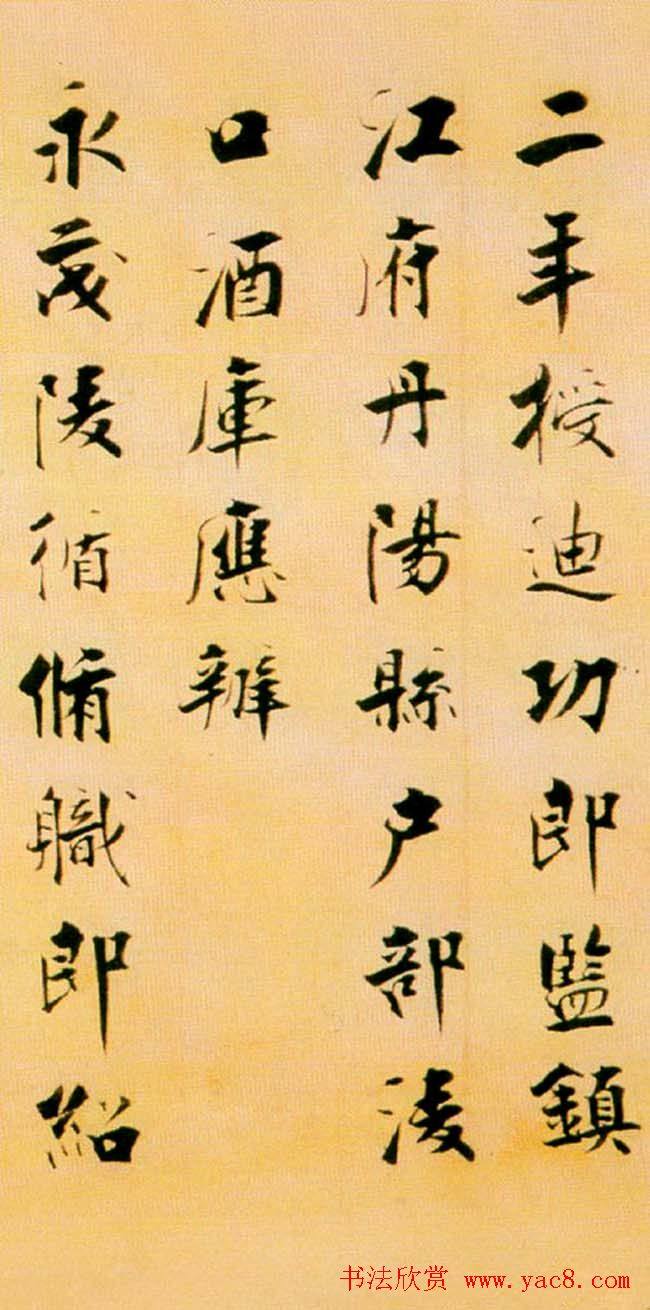 二年授迪功郎監鎮
江府丹陽縣户部淩
口酒庫應辦
永茂陵循脩職郎紹
书法欣赏 www.yac8.com